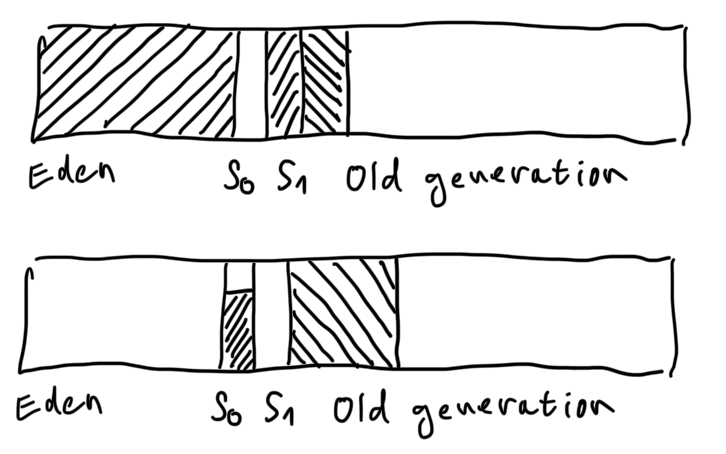 Eden S0 S1 Old generation
Eden S0 S1 Old generation